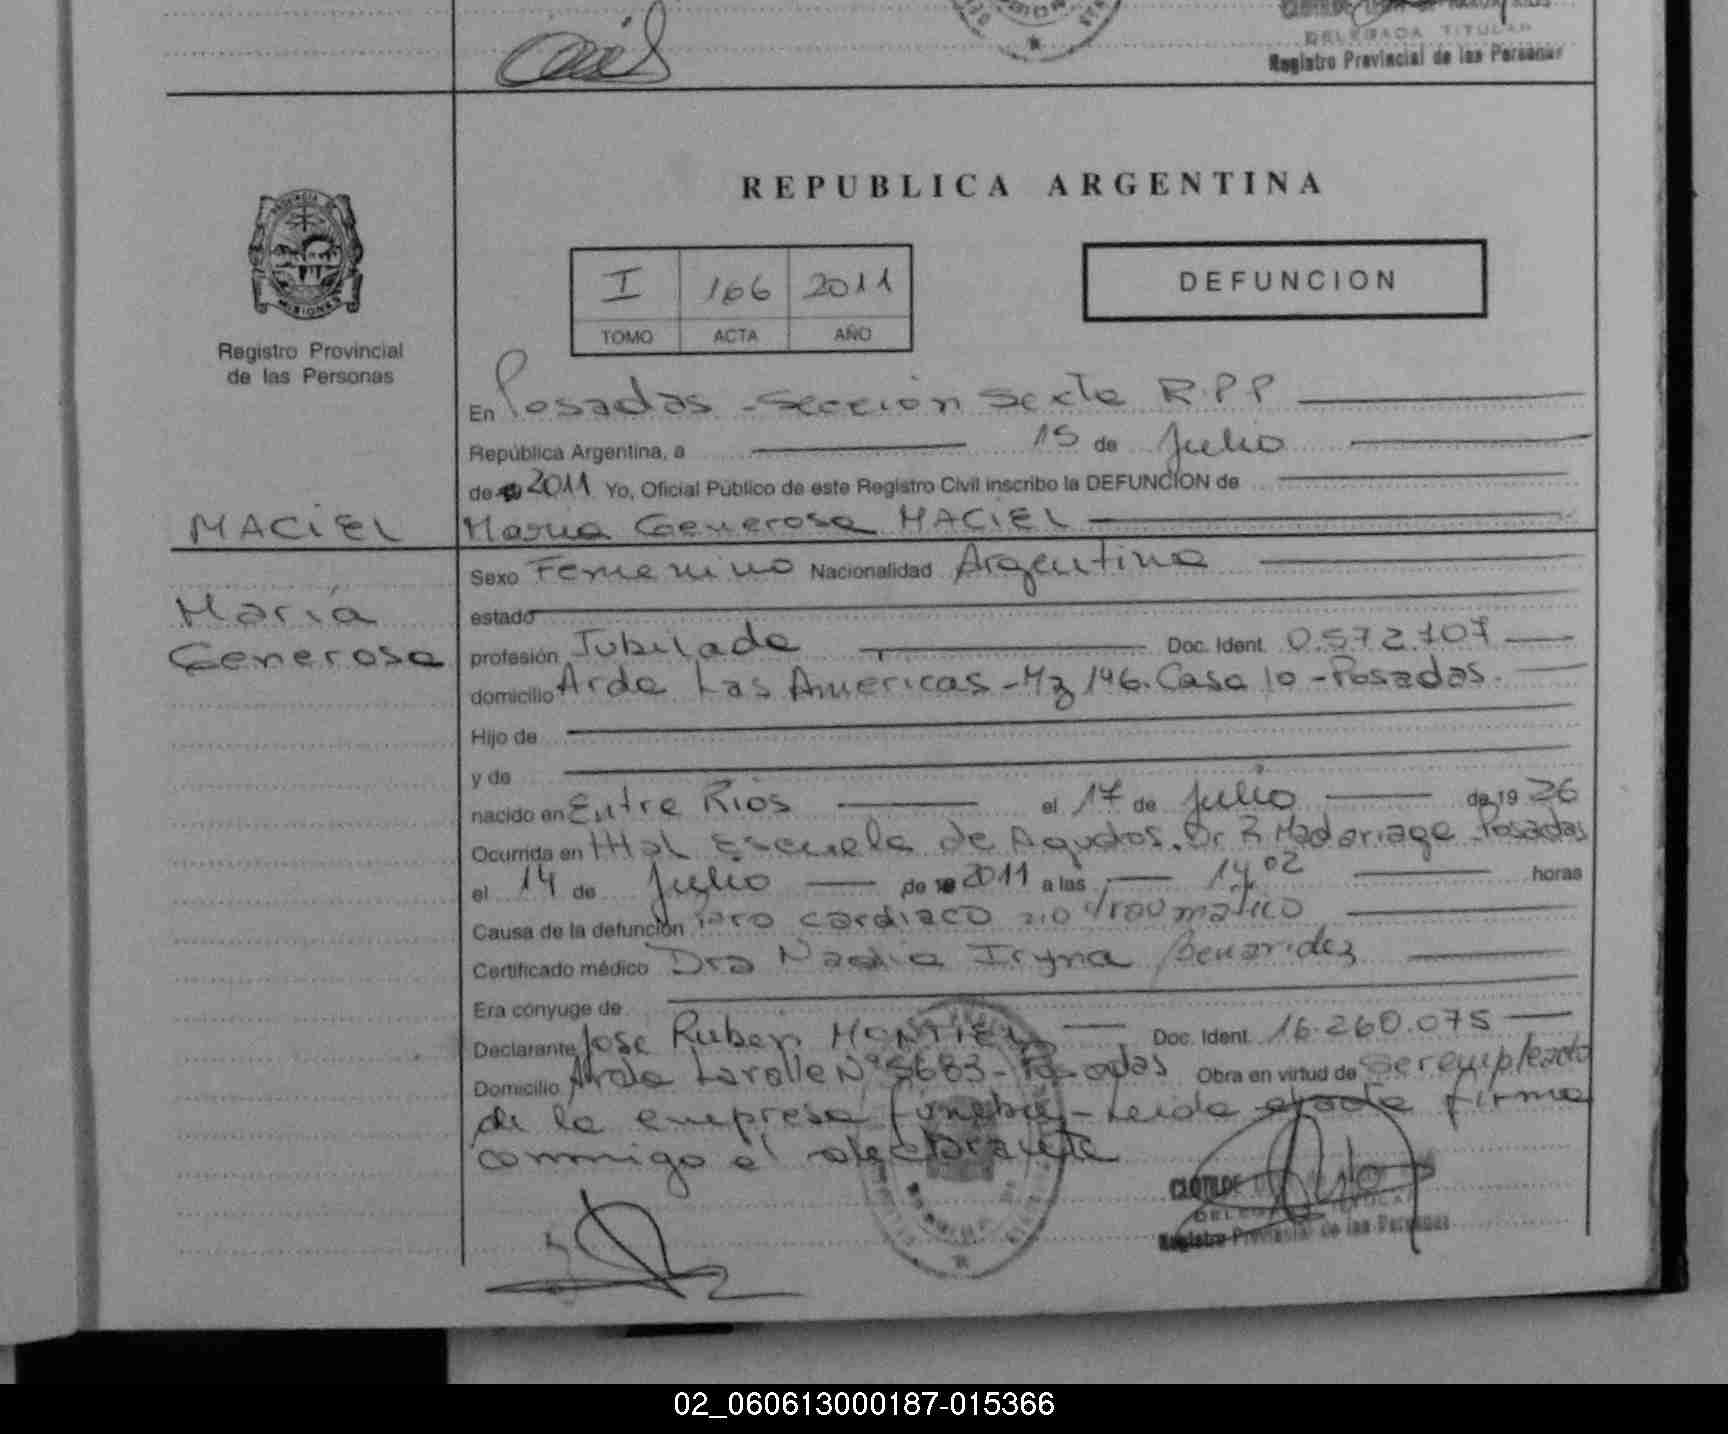 DELEGADA TITULAR
Registro Provincial de las Personas
REPUBLICA ARGENTINA
I 166 2011
TOMO ACTA AÑO
DEFUNCION
MISIONES
Registro Provincial
de las Personas
En Posadas - Sección Sexta R.P.P
República Argentina, a 15 de Julio
de 2011 Yo, Oficial Público de este Registro Civil inscribo la DEFUNCION de
MACIEL
María Generosa MACIEL
María
Generosa
Sexo Femenino Nacionalidad Argentina
estado
profesión Jubilada Doc. Ident. 0.572.707
domicilio Avda Las Americas - Mz 146. Casa 10 - Posadas.
Hijo de
y de
nacido en Entre Rios el 17 de Julio de 19 26
Ocurrida en Htal Escuela de Agudos. Dr R Madariaga Posadas
el 14 de Julio de 2011 a las 14,02 horas
Causa de la defunción Paro cardiaco no traumatico
Certificado médico Dra Nadia Iryna Benaridez
Era cónyuge de
Declarante Jose Ruben MONTIEL Doc. Ident. 16.260.075
Domicilio Avda Lavalle N° 5683 - Posadas Obra en virtud de ser empleado
de la empresa funebre - Leida el acta firma
conmigo el declarante
CLOTILDE
Registro Provincial de las Personas
02_060613000187-015366